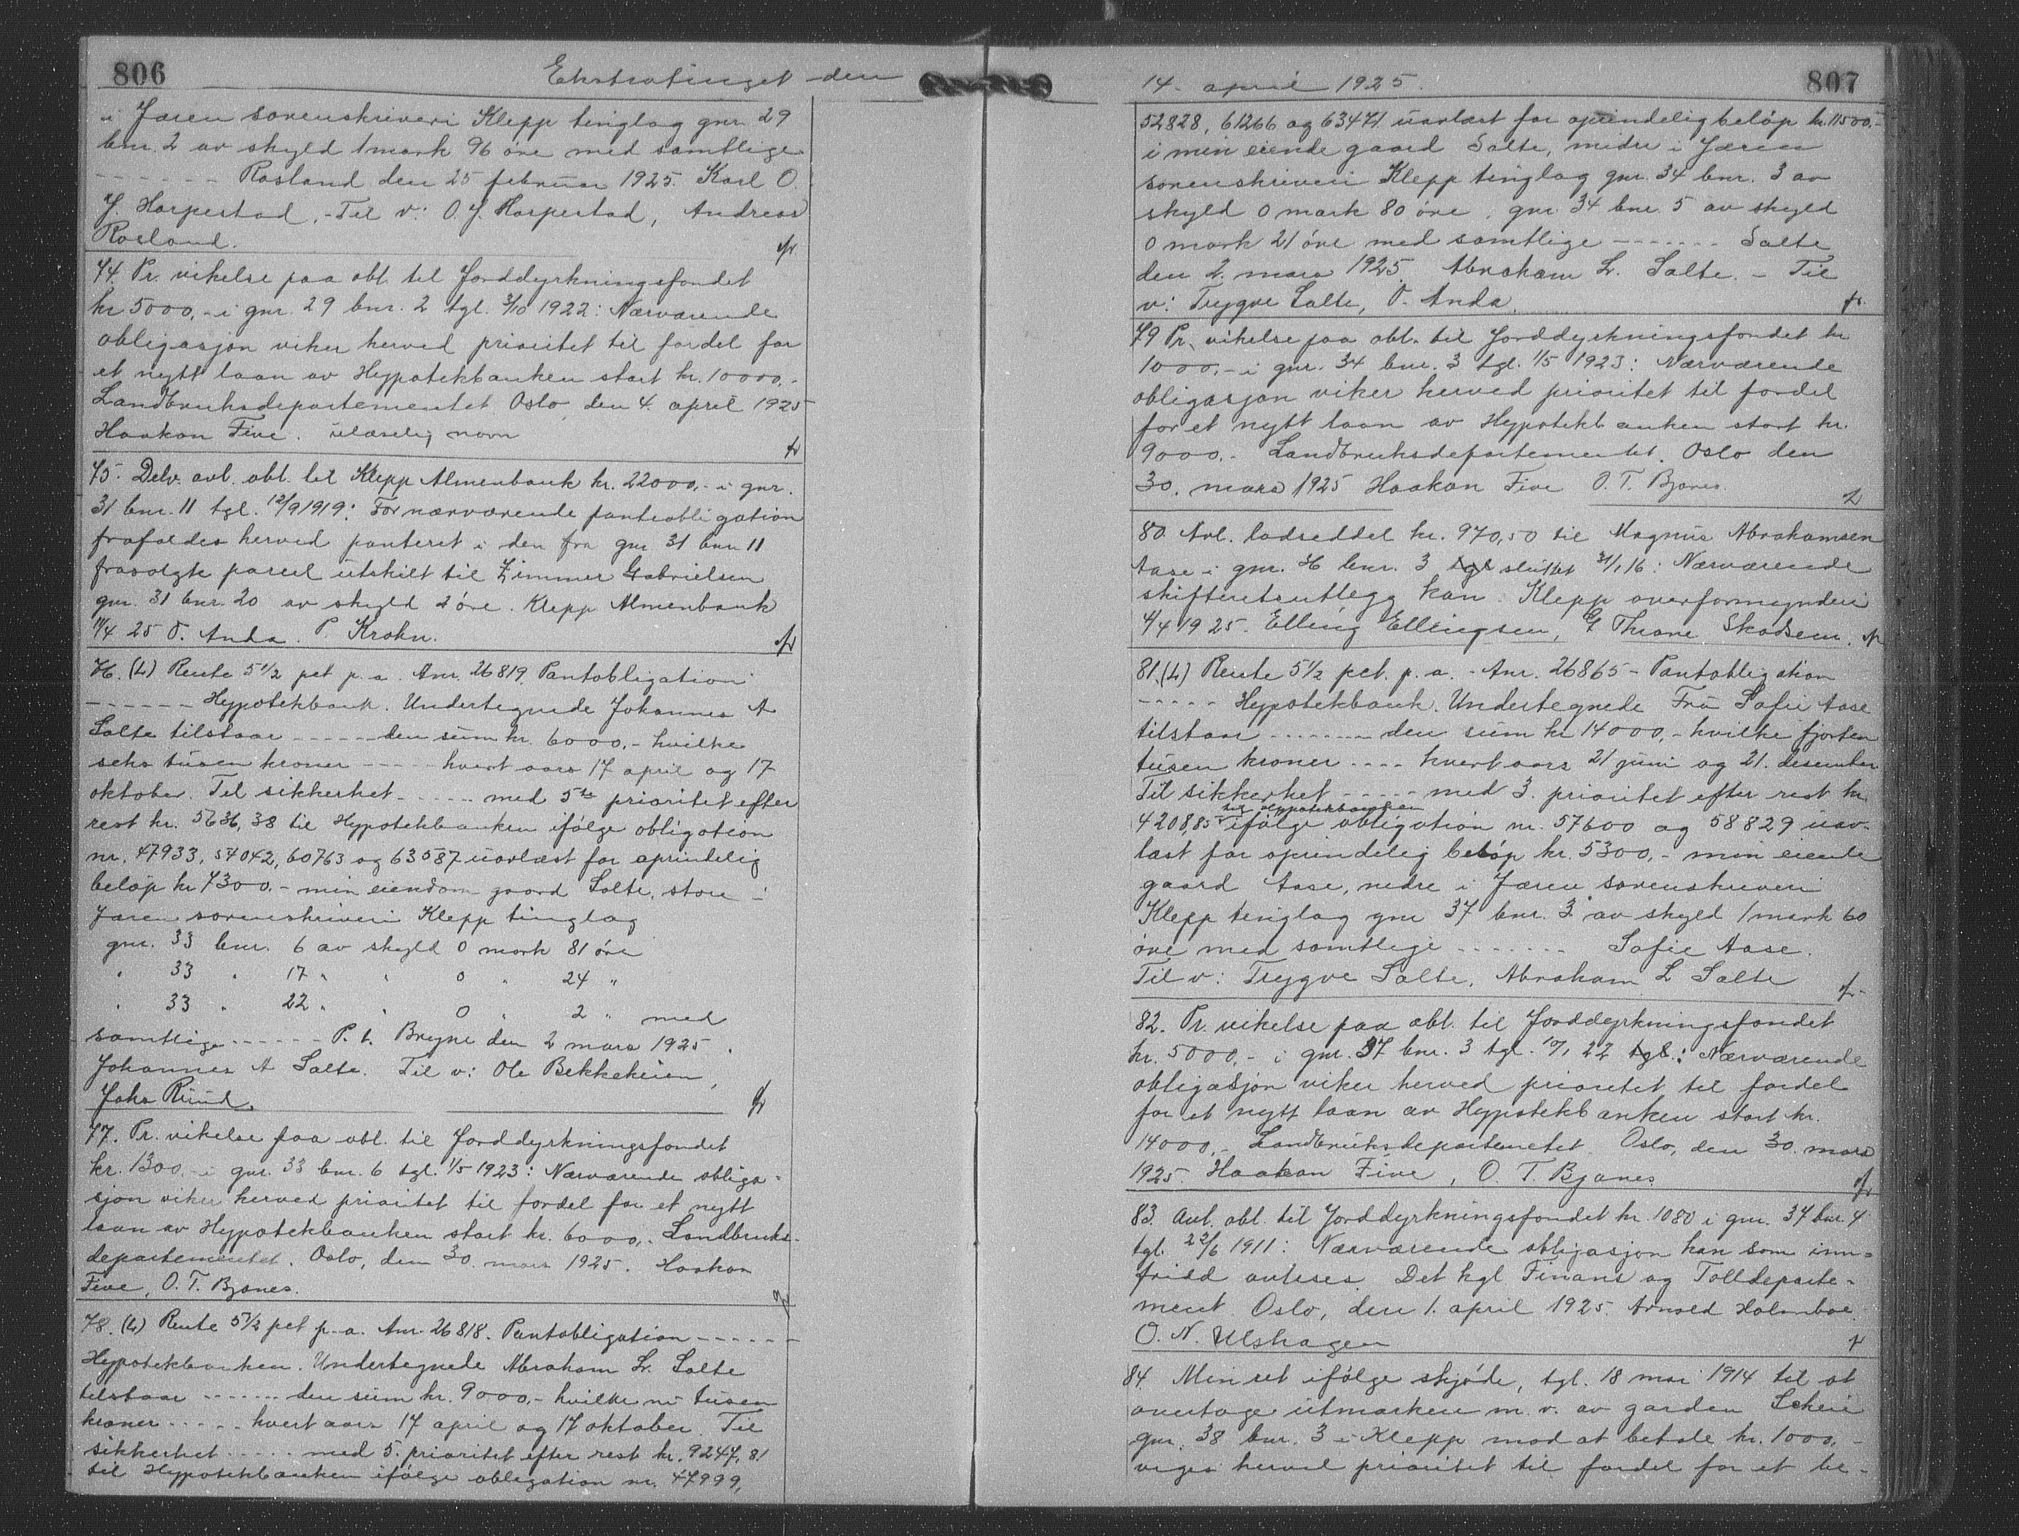 806
Ekstratinget den
i Jæren sorenskriveri Klepp tinglag gnr. 29
bnr. 2 av skyld 1 mark 96 øre med samtlige
- - - - - - Rosland den 25 februar 1925. Karl O.
J. Horpestad. - Til v: O. J. Horpestad, Andreas
Rosland.
74. Pr. vikelse paa obl. til Jorddyrkningsfondet
kr 5000,- i gnr. 29 bnr. 2 tgl. 3/10 1922: Nærværende
obligasjon viker herved prioritet til fordel for
et nytt laan av Hypotekbanken stort kr. 10000,-
Landbruksdepartementet Oslo, den 4. april 1925
Haakon Five. ulæselig navn
75. Delv. avl. obl. til Klepp Almenbank kr. 22000,- i gnr.
31 bnr. 11 tgl. 12/9 1919: For nærværende panteobligation
frafaldes herved panteret i den fra gnr 31 bnr 11
frasolgte parcel utskilt til Zimmer Gabrielsen
gnr. 31 bnr. 20 av skyld 2 øre. Klepp Almenbank
11/4 25 O. Anda. P. Krohn.
76. (4) Rente 5 1/2 pct p. a. Anr. 26819. Pantobligation
- - - - - - Hypotekbank. Undertegnede Johannes A
Salte tilstaar - - - - - den sum kr. 6000,- hvilke
seks tusen kroner - - - - hvert aars 17 april og 17
oktober. Til sikkerhet - - - - - med 5te prioritet efter
rest kr. 5636,38 til Hypotekbanken ifølge obligation
nr. 47933, 54042, 60763 og 63587 uavlæst for oprindelig
beløp kr 7300,- min eiendom gaard Salte, store i
Jæren sorenskriveri Klepp tinglag
gnr. 33 bnr. 6 av skyld 0 mark 81 øre
" 33 " 17 " " 0 " 24 "
" 33 " 22 " " 0 " 2 " med
samtlige - - - - - - P. t. Bryne den 2 mars 1925.
Johannes A Salte. Til v: Ole Bekkeheien,
Johs Ruud.
77. Pr. vikelse paa obl. til Jorddyrkningsfondet
kr. 1300,- i gnr. 33 bnr. 6 tgl. 1/5 1923: Nærværende obliga-
sjon viker herved prioritet til fordel for et nytt
laan av Hypotekbanken stort kr. 6000,- Landbruks-
departementet. Oslo, den 30. mars 1925. Haakon
Five, O. T. Bjanes.
78. (4) Rente 5 1/2 pct p. a. Anr. 26818. Pantobligation - - - - - -
Hypotekbanken. Undertegnede Abraham Lr. Salte
tilstaar - - - - - - den sum kr. 9000,- hvilke ni tusen
kroner - - - - - hvert aars 17 april og 17 oktober. Til
sikkerhet - - - - - med 5. prioritet efter rest kr. 9247,81
til Hypotekbanken ifølge obligation nr. 47999,
14. april 1925.
807
52828, 61266 og 63471 uavlæst for oprindelig beløp kr. 11500,-
i min eiende gaard Salte, midre i Jæren
sorenskriveri Klepp tinglag gnr. 34 bnr. 3 av
skyld 0 mark 80 øre, gnr. 34 bnr. 5 av skyld
0 mark 21 øre med samtlige - - - - - - Salte
den 2. mars 1925. Abraham Lr. Salte. - Til
v: Trygve Salte, O. Anda.
79 Pr. vikelse paa obl. til Jorddyrkningsfondet kr
1000,- i gnr. 34 bnr. 3 tgl. 1/5 1923: Nærværende
obligasjon viker herved prioritet til fordel
for et nytt laan av Hypotekbanken stort kr.
9000.- Landbruksdepartementet. Oslo den
30. mars 1925 Haakon Five O. T. Bjanes.
80 Avl. lodseddel kr. 970,50 til Magnus Abrahamsen
Aase i gnr. bnr. 3 tgl sluttet 31/1 16: Nærværende
skifteretsutlegg kan Klepp overformynderi
4/4 1925. Elling Ellingsen, G Thrane Skadsem.
81. (4) Rente 5 1/2 pct. p. a. - Anr. 26865 - Pantobligation
- - - - - Hypotekbank. Undertegnede Fru Sofie Aase
tilstaar - - - - - - - den sum kr 14000,- hvilke fjorten
tusen kroner - - - - hvert aars 21 juni og 21. desember
Til sikkerhet - - - - - med 3. prioritet efter rest kr.
til Hypotekbanken
4208,85 ifølge obligation nr. 57600 og 58829 uav-
læst for oprindelig beløp kr. 5300,- min eiende
gaard Aase, nedre i Jæren sorenskriveri
Klepp tinglag gnr 37 bnr. 3 av skyld 1 mark 60
øre med samtlige - - - - - - - Sofie Aase.
Til v: Trygve Salte, Abraham L Salte
82. Pr. vikelse paa obl. til Jorddyrkningsfondet
kr. 5000,- i gnr. 37 bnr. 3 tgl. 10/1 22 tgl.: Nærværende
obligasjon viker herved prioritet til fordel
for et nytt laan av Hypotekbanken stort kr.
14000,- Landbruksdepartementet Oslo, den 30. mars
1925. Haakon Five, O. T. Bjanes
83. Avl. obl. til Jorddyrkningsfondet kr. 1080 i gnr. 37 bnr. 4
tgl. 22/6 1911: Nærværende obligasjon kan som inn-
fridd avlæses. Det kgl Finans og Tolldeparte-
ment. Oslo, den 1. april 1925. Arnold Holmboe
O. N. Ulshagen
84 Min ret ifølge skjøde, tgl. 18 mai 1914 til at
overtage utmarken m. v. av garden Scheie
gnr. 38 bnr. 3 i Klepp mod at betale kr. 1000,-
viger herved prioritet til fordel for et be-